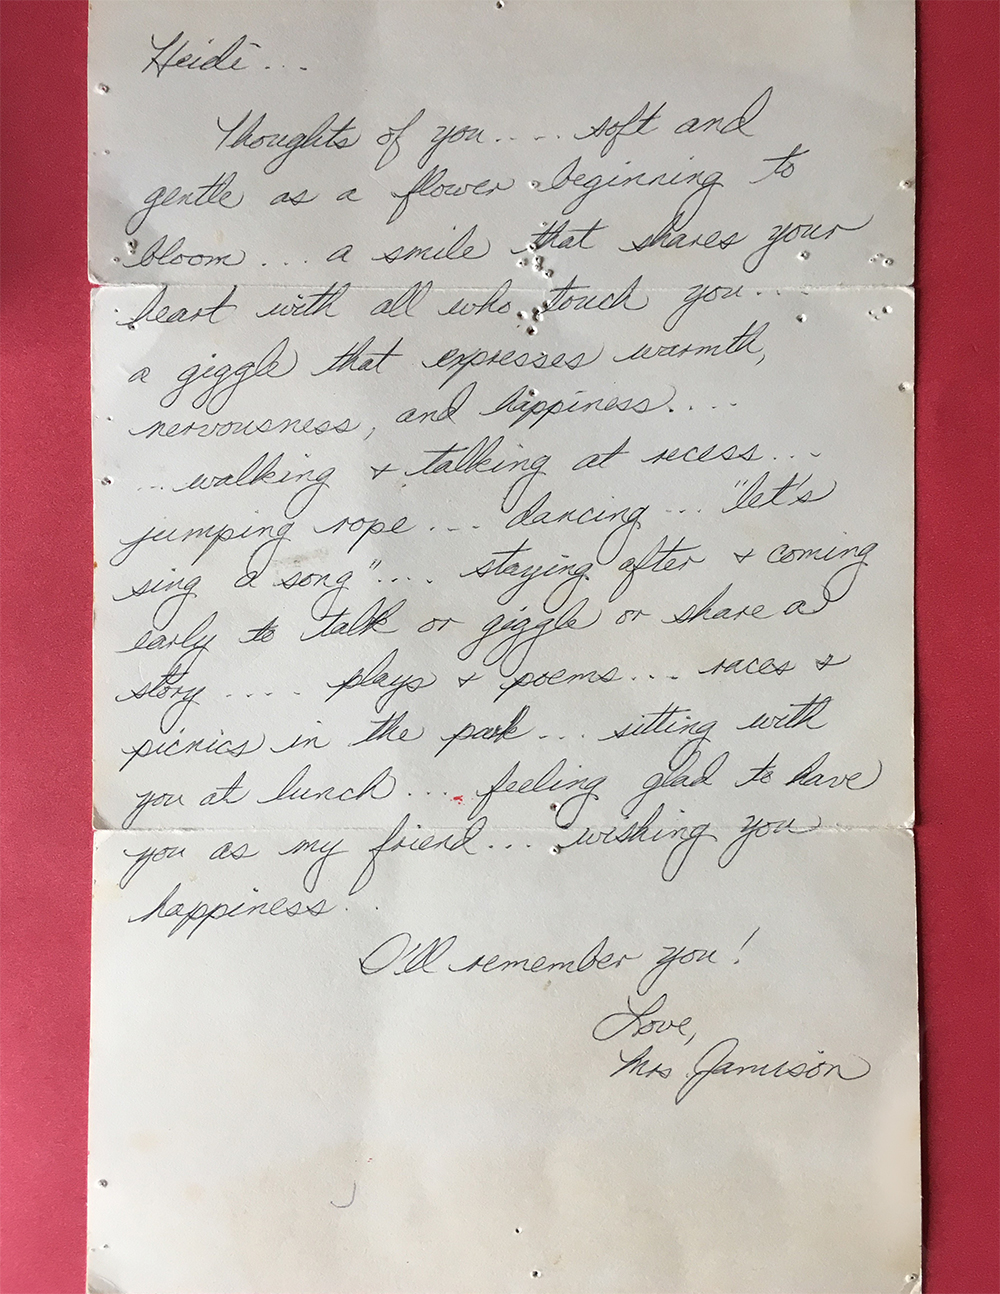 Heidi...
Thoughts of you.... soft and
gentle as a flower beginning to
bloom... a smile that shares your
heart with all who touch you....
a giggle that expresses warmth,
nervousness, and happiness....
...walking & talking at recess...
jumping rope... dancing... "let's
sing a song".... staying after & coming
early to talk or giggle or share a
story.... plays & poems... races &
picnics in the park... sitting with
you at lunch.... feeling glad to have
you as my friend... wishing you
happiness...
I'll remember you!
Love,
Mrs. Jamison